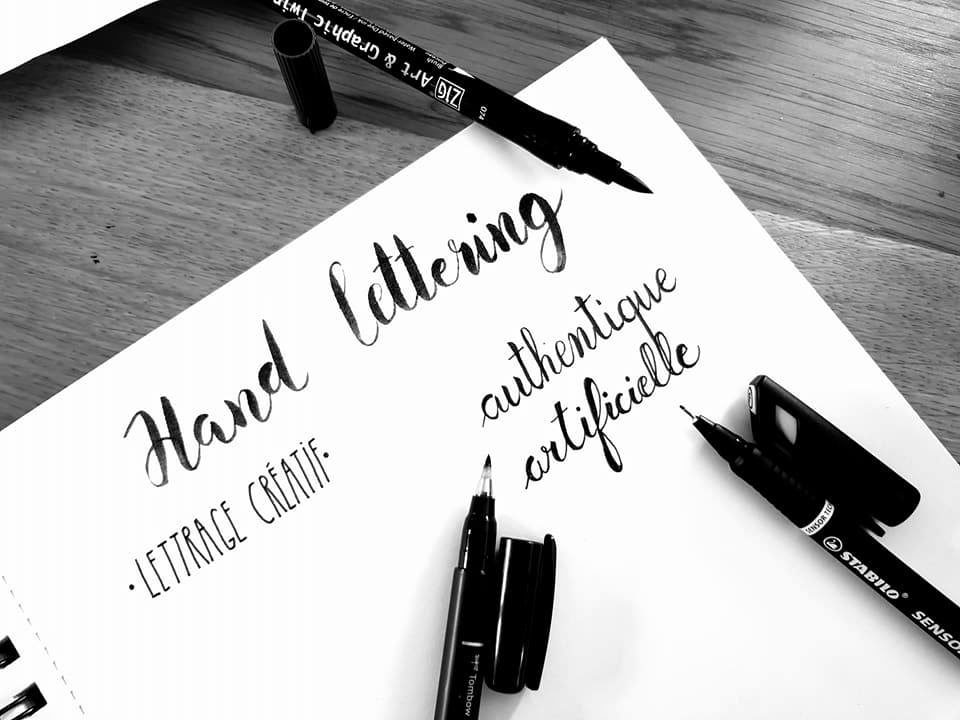 Hand lettering
• LETTRAGE CRÉATIF •
authentique
artificielle
ZIG Art & Graphic Twin
Brush
074
Tombow
SENSOR TECH
STABILO®
SENSOR